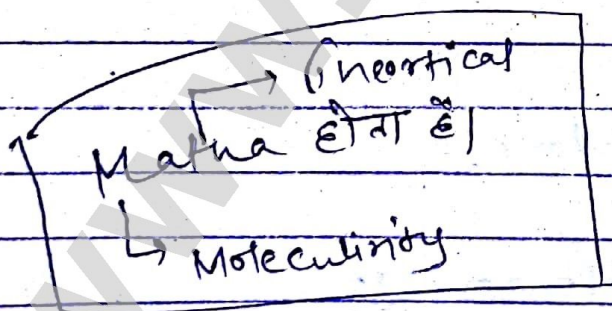 Theortical
Matha होता है।
Moleculirity